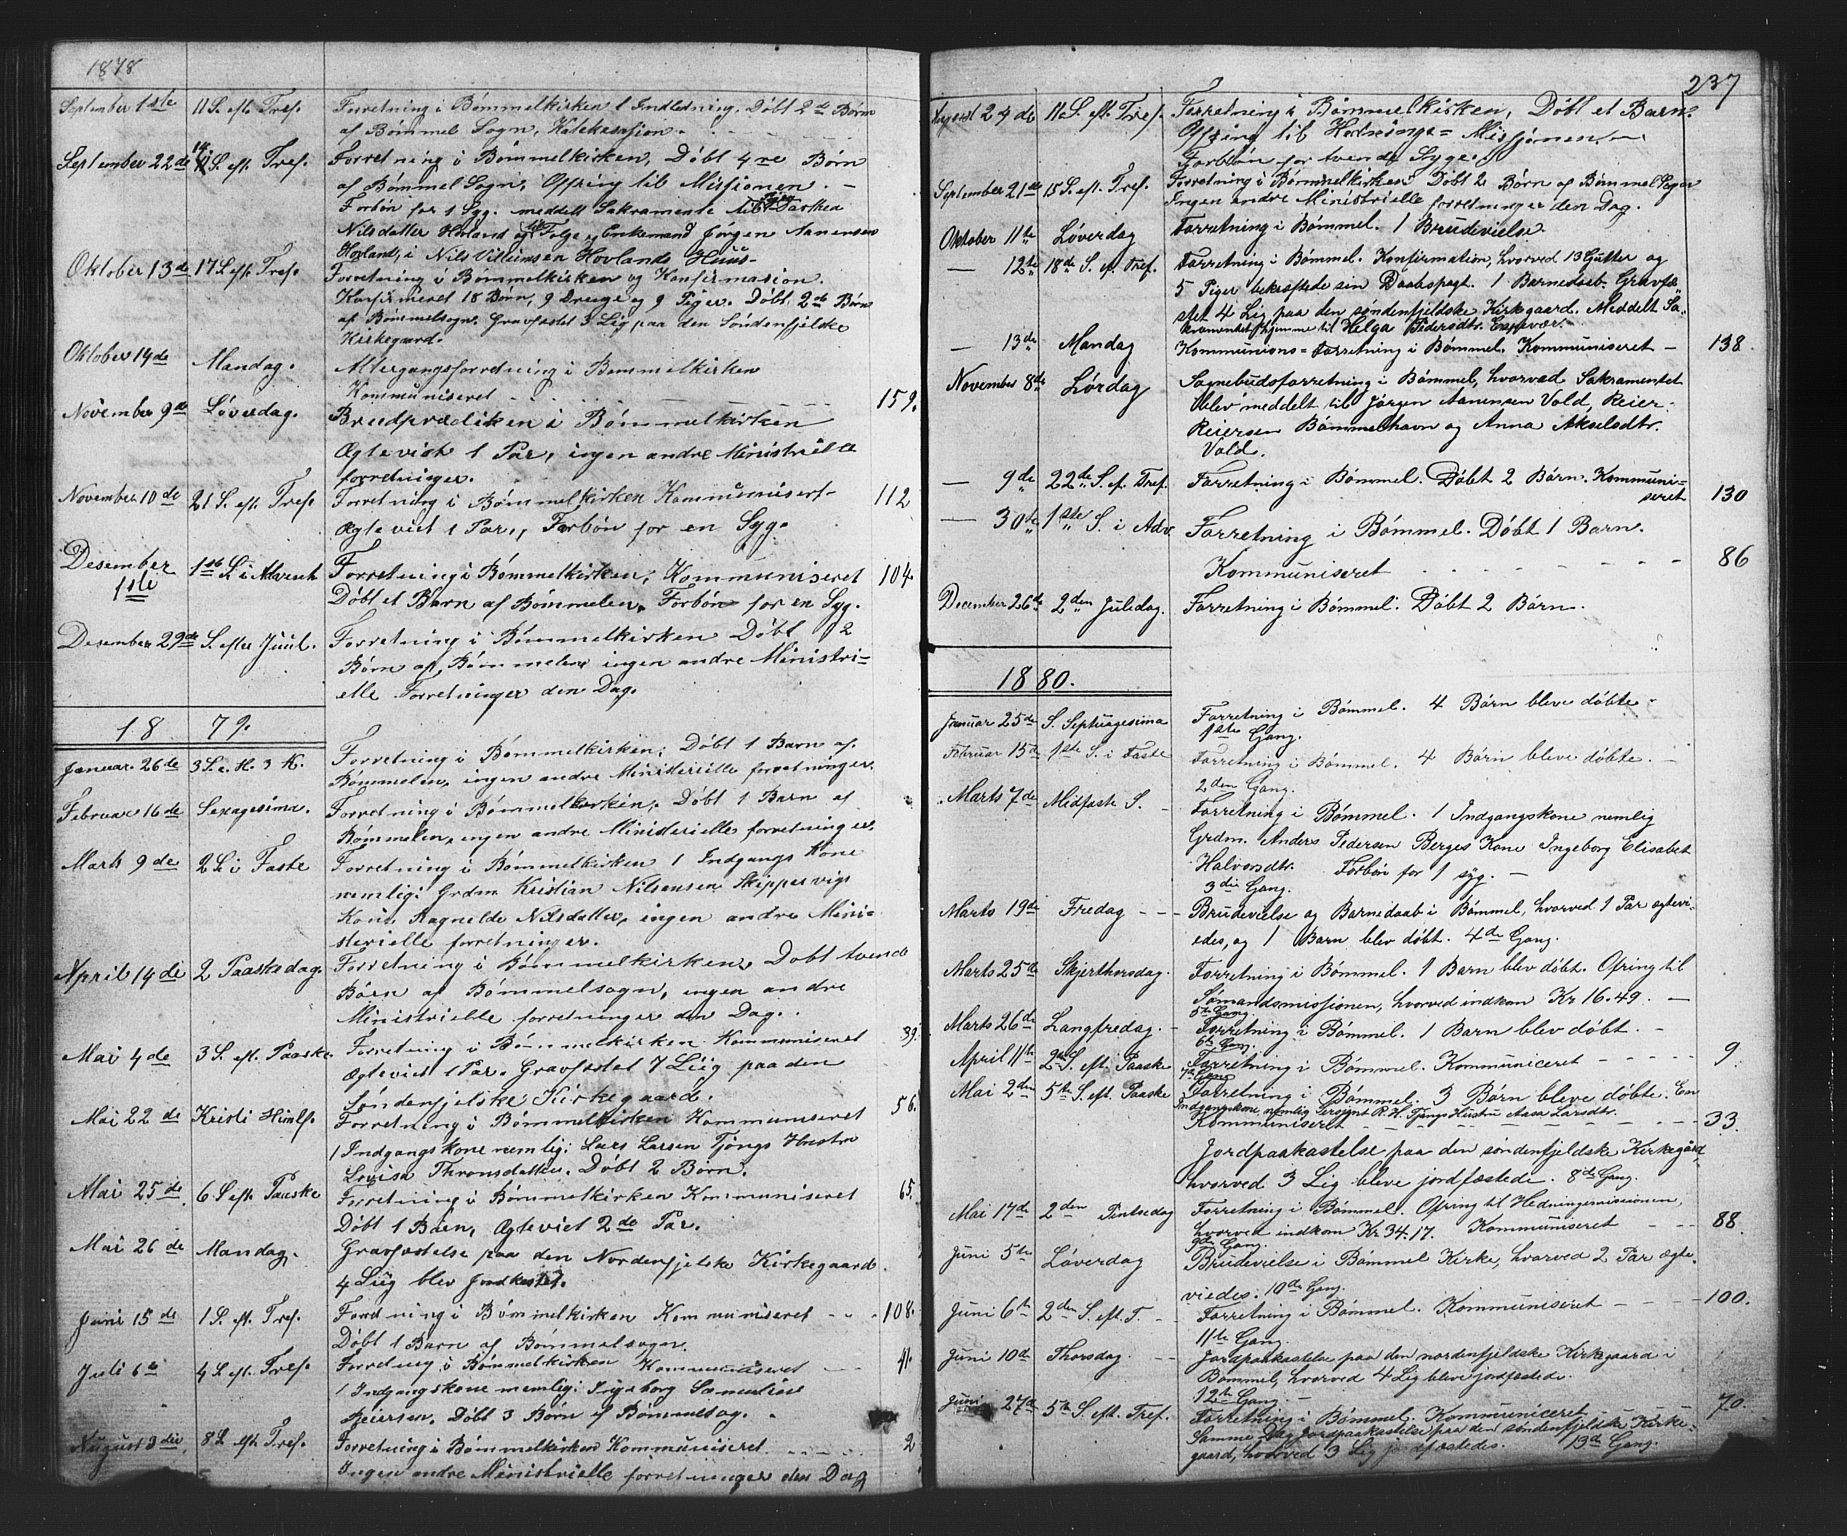 1878
September 1ste 11 S. eft. Tref. Forretning i Bømmelkirken 1 Indledning. Døbt 2de Børn
af Bømmel Sogn, Katekesasion.
September 22de 14 S. eft. Tref. Forretning i Bømmelkirken, Døbt 4re Børn
af Bømmel Sogn, Offring til Missionen. —
Forbøn for 1 Syg. meddelt Sakramente til
Nilsdatter Hovland og Enkemand Jørgen Aanensen
Hovland, i Nils Villumsen Hovlands Huus-
Oktober 13de 17 S. eft. Tref. Forretning i Bømmelkirken og Konfirmasion.
Konfirmeret 18 Børn, 9 Drenge og 9 Piger. Døbt 2de Børn
af Bømmelsogn. Gravfæstet 3 Lig paa den Søndenfjelske
Kirkegaard.
Oktober 14de Mandag. Altergangsforretning i Bømmelkirken
Kommuniseret 159.
November 9de Løverdag. Brudprædiken i Bømmelkirken
Ægteviet 1 Par, ingen andre Ministrielle
forretninger.
November 10de 21 S. eft Tref. Forretning i Bømmelkirken Kommuniseret 112
Ægteviet 1 Par, Forbøn for en Syg.
Desember 1ste 1ste S. i Advent Forretning i Bømmelkirken, Kommuniseret 104.
Døbt et Barn af Bømmelen, Forbøn for en Syg.
Desember 29de S. efter Juul. Forretning i Bømmelkirken Døbt 2
Børn af Bømmelen, ingen andre Ministri-
elle Forretninger den Dag.
1879.
Januar 26de 3 S. e. H. 3 K. Forretning i Bømmelkirken, Døbt 1 Barn af
Bømmelen, ingen andre Ministerielle forretninger.
Februar 16de Sexagesima. Forretning i Bømmelkirken, Døbt 1 Barn af
Bømmelen, ingen andre Ministerielle forretninger.
Marts 9de 2 S. i Faste Forretning i Bømmelkirken 1 Indgangs Kone
nemlig: Grdm Kristian Nilsensen Skippervigs
Kone Ragnelde Nilsdatter, ingen andre Mini-
sterielle forretninger.
April 14de 2 Paaskedag. Forretning i Bømmelkirken, Døbt tvende
Børn af Bømmelsogn, ingen andre
Ministrielle forretninger den Dag.
Mai 4de 3 S. eft. Paaske. Forretning i Bømmelkirken Kommuniseret 39.
Ægteviet 1 Par. Gravfæstet 7 Liig paa den
Søndenfjelske Kirkegaard.
Mai 22de Kristi Himlf. Forretning i Bømmelkirken Kommuniseret 56.
1 Indgangskone nemlig: Lars Larsen Tjongs Hustru
Lovisa Thronsdatter. Døbt 2 Børn.
Mai 25de 6 S. eft. Paaske Forretning i Bømmelkirken Kommuniseret 65.
Døbt 1 Barn, Ægteviet 2de Par.
Mai 26de Mandag. Gravfæstelse paa den Nordenfjelske Kirkegaard.
4 Liig blev Jordkastet.
Juni 15de 1 S. eft. Tref. Forretning i Bømmelkirken Kommuniseret 108.
Døbt 1 Barn af Bømmelsogn.
Juli 6te 4 S. eft. Tref. Forretning i Bømmelkirken Kommuniseret 41.
1 Indgangskone nemlig: Ingeborg
Reiersen. Døbt 3 Børn af Bømmelsog.
August 3die 8 S. eft. Tref. Forretning i Bømmelkirken Kommuniseret 2
Ingen andre Ministrielle forretninger den Dag
237
August 24de 11 S. eft. Tref. Forretning i Bømmelkirken, Døbt et Barn.
Offring til Hednings= Missjonen. —
Forbøn for tvende Syge.
September 21de 15 S. eft. Tref. Forretning i Bømmelkirken Døbt 2 Børn af Bømmel Sogn
Ingen andre Ministrielle forretninger den Dag.
Oktober 11te Løverdag Forretning i Bømmel. 1 Brudevielse.
— 12te 18de S. ef. Tref. Forretning i Bømmel. Konfirmation, hvorved 13 Gutter og
5 Piger bekræftede sin Daabspagt. 1 Barnedaab. Gravfæ-
stet 4 Lig paa den søndenfjeldske Kirkgaard. Meddelt Sa-
kramentet hjemme til Helga Pedersdtr. Espevær.
— 13de Mandag Kommunions=forretning i Bømmel. Kommuniseret — 138.
November 8de Lørdag Sognebudsforretning i Bømmel, hvorved Sakramentet
blev meddelt til Jørgen Aanensen Vold, Reier
Reiersen Bømmelhavn og Anna Akselsdtr.
Vold.
— 9de 22de S. ef. Tref. Forretning i Bømmel. Døbt 2 Børn. Kommuni-
seret 130
— 30te 1ste S. i Adv. Forretning i Bømmel. Døbt 1 Barn.
Kommuniseret 86
December 26de 2den Juledag. Forretning i Bømmel. Døbt 2 Børn.
1880.
Januar 25de S. Septuagesima Forretning i Bømmel. 4 Børn bleve døbte.
1ste Gang.
Februar 15de 1ste S. i Faste Forretning i Bømmel. 4 Børn bleve døbte. —
2den Gang.
Marts 7de Midfaste S. — Forretning i Bømmel. 1 Indgangskone nemlig
Grdm. Anders Pedersen Berges Kone Ingeborg Elisabet
Halvorsdtr. Forbøn for 1 syg. —
3die Gang.
Marts 19de Fredag - - - Brudevielse og Barnedaab i Bømmel, hvorved 1 Par ægtevi-
edes, og 1 Barn blev døbt. 4de Gang.
Marts 25de Skjerthorsdag. Forretning i Bømmel. 1 Barn blev døbt. Ofring til
Sømandsmissjonen, hvorved indkom Kr. 16.49. —
5te Gang.
Marts 26de Langfredag. - Forretning i Bømmel. 1 Barn blev døbt. —
6te Gang.
April 11te 2den S. eft. Paaske Forretning i Bømmel. Kommuniceret 9.
7de Gang
Mai 2den 5te S. eft. Paaske Forretning i Bømmel. 3 Børn bleve døbte. En
Indgangskone, nemlig Sersjant R. H. Tjongs Hustru Aasa Larsdtr.
Kommuniseret 33.
Jordpaakastelse paa den søndenfjeldske Kirkegård
hvorved 3 Lig bleve jordfæstede. 8de Gang.
Mai 17de 2den Pintsedag Forretning i Bømmel. Ofring til Hedningemissionen,
hvorved indkom Kr. 34.17. Kommuniseret 88.
9de Gang.
Juni 5te Løverdag Brudevielse i Bømmel Kirke, hvorved 2 Par ægte-
viedes. 10de Gang.
Juni 6te 2den S. eft. T. — Forretning i Bømmel. Kommuniseret 100.
11te Gang.
Juni 10de Thorsdag. Jordpaakastelse paa den nordenfjeldske Kirkegaard i
Bømmel, hvorved 4 Lig bleve jordfæstede.
12te Gang.
Juni 27de 5te S. eft. Tref. Forretning i Bømmel. Kommuniceret 70.
Samme Dag Jordpaakastelse paa den søndenfjeldske Kirke-
gaard, hvorved 3 Lig jordfæstedes. 13de Gang.